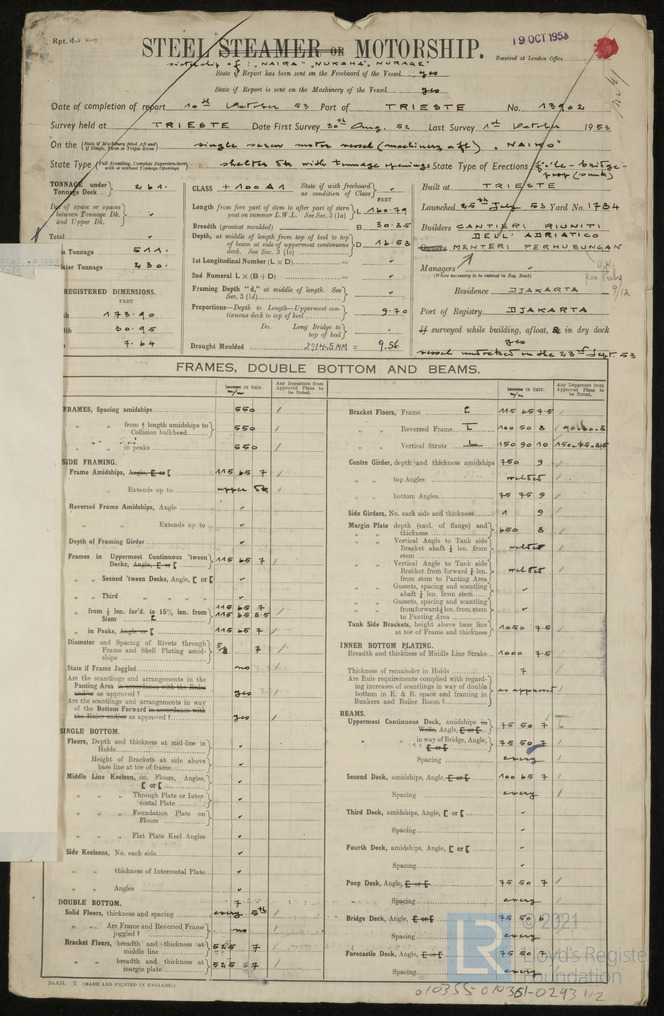 Rpt.
STEEL STEAMER OR MOTORSHIP.
19 OCT 1953
Received at London Office
sistership of: "NAIRA" NUKAHA, NURAGE"
State if Report has been sent on the Freeboard of the Vessel yes
State if Report is sent on the Machinery of the Vessel yes
Date of completion of report 10th October 53 Port of TRIESTE No. 13902
Survey held at TRIESTE Date First Survey 30th Aug. 52 Last Survey 1st October 1953
On the (State if Machinery fitted Aft and if Single, Twin or Triple Screw) single screw motor vessel (machinery aft) "NAIKO"
State Type (Full Scantling, Complete Superstructure with or without Tonnage Openings) shelter dk with tonnage openings State Type of Erections
TONNAGE under Tonnage Deck... 261.
Do. of space or spaces between Tonnage Dk. and Upper Dk.
Total
Tonnage 511.
Tonnage 230.
REGISTERED DIMENSIONS.
FEET
173.90
30.95
7.64
CLASS + 100 A1 State if with freeboard as condition of Class
FEET
Length from fore part of stem to after part of stern post on summer L.W.L. See Sec. 3 (1a) L 160.79
Breadth (greatest moulded) B 30.85
Depth, at middle of length from top of keel to top of beam at side of uppermost continuous deck. See Sec. 3 (1c) D 16.58
1st Longitudinal Number (L × D)
2nd Numeral L × (B + D)
Framing Depth "d," at middle of length. See Sec. 3 (1d)
Proportions—Depth to Length—Uppermost continuous deck to top of keel 9.70
Do. Long Bridge to top of keel
Draught Moulded 2914.5 MM = 9.56
Built at TRIESTE
Launched 25th July 53 Yard No. 1784
Builders CANTIERI RIUNITI
DELL' ADRIATICO
Owners MENTERI PERHUBUNGAN
Managers
(Where necessary to be entered in Reg. Book)
Residence DJAKARTA
9/12
Port of Registry DJAKARTA
If surveyed while building, afloat, & in dry dock
yes
vessel undocked on the 23rd Sept. 53
FRAMES, DOUBLE BOTTOM AND BEAMS.
INCHES IN SHIP.
m/m
Any Departure from Approved Plans to be Noted.
FRAMES, Spacing amidships 550
" " from 1/5 length amidships to Collision bulkhead 550
" " in peaks 550
SIDE FRAMING.
Frame Amidships, Angle, [ or [ 115 65 7
" " Extends up to upper dk
Reversed Frame Amidships, Angle
" " Extends up to
Depth of Framing Girder
Frames in Uppermost Continuous 'tween Decks, Angle, [ or [ 115 65 7
" " Second 'tween Decks, Angle, [ or [
" " Third " "
" " from 1/5 len. for'd. to 15% len. from Stem 115 65 7
115 65 8.5
" " in Peaks, Angle or [ 115 65 7
Diameter and Spacing of Rivets through Frame and Shell Plating amidships 5/8 7
State if Frame Joggled no
Are the scantlings and arrangements in the Panting Area in accordance with the Rules and/or as approved? yes
Are the scantlings and arrangements in way of the Bottom Forward in accordance with the Rules and/or as approved? yes
SINGLE BOTTOM.
Floors, Depth and thickness at mid-line in Holds
Height of Brackets at side above base line at toe of frame
Middle Line Keelson, on Floors, Angles, [ or [
" " Through Plate or Intercostal Plate
" " Foundation Plate on Floors
" " Flat Plate Keel Angles
Side Keelsons, No. each side
" " thickness of Intercostal Plate
" " Angles
DOUBLE BOTTOM. 7
Solid Floors, thickness and spacing every 5th
" " Are Frame and Reversed Frame joggled? no
Bracket Floors, breadth and thickness at middle line 525 7
" " breadth and thickness at margin plate 525 7
Bracket Floors, Frame [ 115 65 7.5
" " Reversed Frame 100 50 8
" " Vertical Struts 150 90 10 150.75.8.5
Centre Girder, depth and thickness amidships 750 9
" " top Angles welded
" " bottom Angles 75 75 9
Side Girders, No. each side and thickness 1 9
Margin Plate depth (excl. of flange) and thickness 650 8
" " Vertical Angle to Tank side Bracket abaft 1/4 len. from stem welded
" " Vertical Angle to Tank side Bracket from forward 1/4 len. from stem to Panting Area welded
" " Gussets, spacing and scantling abaft 1/4 len. from stem
" " Gussets, spacing and scantling from forward 1/4 len. from stem to Panting Area
Tank Side Brackets, height above base line at toe of Frame and thickness 1050 7.5
INNER BOTTOM PLATING.
Breadth and thickness of Middle Line Strake 1000 7.5
Thickness of remainder in Holds 7
Are Rule requirements complied with regarding increases of scantlings in way of double bottom in E. & B. space and framing in Bunkers and Boiler Room? as approved
BEAMS.
Uppermost Continuous Deck, amidships in Wells, Angle, [ or [ 75 50 7
" " in way of Bridge, Angle, [ or [ 75 50 7
Spacing every
Second Deck, amidships, Angle, [ or [ 100 65 7
Spacing every
Third Deck, amidships, Angle, [ or [
Spacing
Fourth Deck, amidships, Angle, [ or [
Spacing
Poop Deck, Angle, [ or [ 75 50 7
Spacing every
Bridge Deck, Angle, [ or [ 75 50 6
Spacing every
Forecastle Deck, Angle, [ or [ 75 50 7
Spacing every
(MADE AND PRINTED IN ENGLAND.)
LR
© 2021
Lloyd's Register
Foundation
010355-010361-0293 1/2